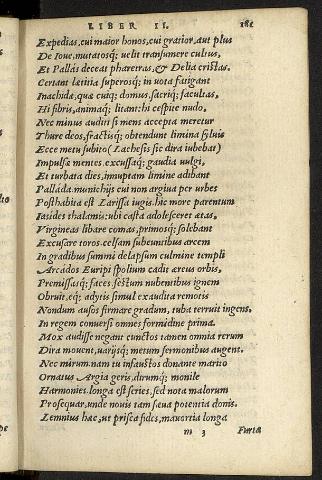 LIBER II. 181
Expedias, cui maior honos, cui gratior, aut plus
De Ioue, mutatosq; uelit transumere cultus,
Et Pallás deceat pharetras, & Delia cristas.
Certant lætitia superosq; in uota fatigant
Inachidæ, quæ cuiq; domus, sacriq; facultas.
Hi fibris, animaq; litant: hi cespite nudo.
Nec minus auditi si mens accepta meretur
Thure deos, fractisq; obtendunt limina syluis
Ecce metu subito (Lachesis sic dira iubebat)
Impulsæ mentes, excussaq; gaudia uulgi,
Et turbata dies, innuptam limine adibant
Pallada. munichijs cui non argiua per urbes
Posthabita est Larissa iugis. hic more parentum
Iasides thalamis ubi casta adolesceret ætas,
Virgineas libare comas, primosq; solebant
Excusare toros. celsam subeuntibus arcem
In gradibus summi delapsum culmine templi
Arcados Euripi spolium cadit æreus orbis,
Præmissasq; faces. festum nubentibus ignem
Obruit. eq; adytis simul exaudita remotis
Nondum ausos firmare gradum, tuba terruit ingens,
In regem conuersi omnes formidine prima.
Mox audisse negant cunctos tamen omnia rerum
Dira mouent, uarijsq; metum sermonibus augent.
Nec mirum. nam tu infaustos donante marito
Ornatus Argia geris, dirumq; monile
Harmonies. longa est series, sed nota malorum
Prosequar, unde nouis tam sæua potentia donis.
Lemnius hæc, ut prisca fides, mauortia longa
m 3 Furta